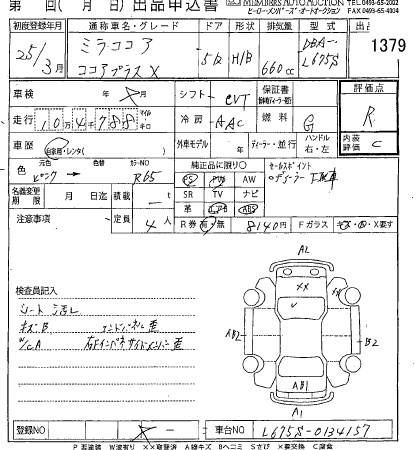 第 回( 月 日) 出品申込書 MEMBERS AUTO AUCTION TEL 0493-65-2002
ヒーローメンバーズ・オートオークション FAX 0493-65-4004
初度登録年月 通称車名・グレード ドア 形状 排気量 型式
25/3月 ミラココア 5D H/B 660cc DBA-L675S 1379
ココアプラス X
車検 年 月 シフト CVT 保証書 評価点
走行 10万4千788 マイル キロ 冷房 AAC 燃料 G R
車歴 自家用・レンタ( ) 外車モデル 年 ディーラー・並行 ハンドル 右・左 内装評価 C
色 元色 色替 カラーNO 純正品に限り○ セールスポイント
ピンク → R65 PS PW AW ○ディーラー下取車
名義変更期限 月 日迄 積載 t SR TV ナビ
注意事項 定員 4人 革 エアB ABS
R券 有・無 8140円 Fガラス キズ・X要す
A2
XX
検査員記入
シート 汚れ
キズB エンドパネル歪
W/CA 右Fインパネサイドメンバー歪
AB2 B2
AB1
A1
登録NO 車台NO L675S-0134157
P 要塗装 W波有り XX取替済 A線キズ Bヘコミ Sさび X要交換 C腐食